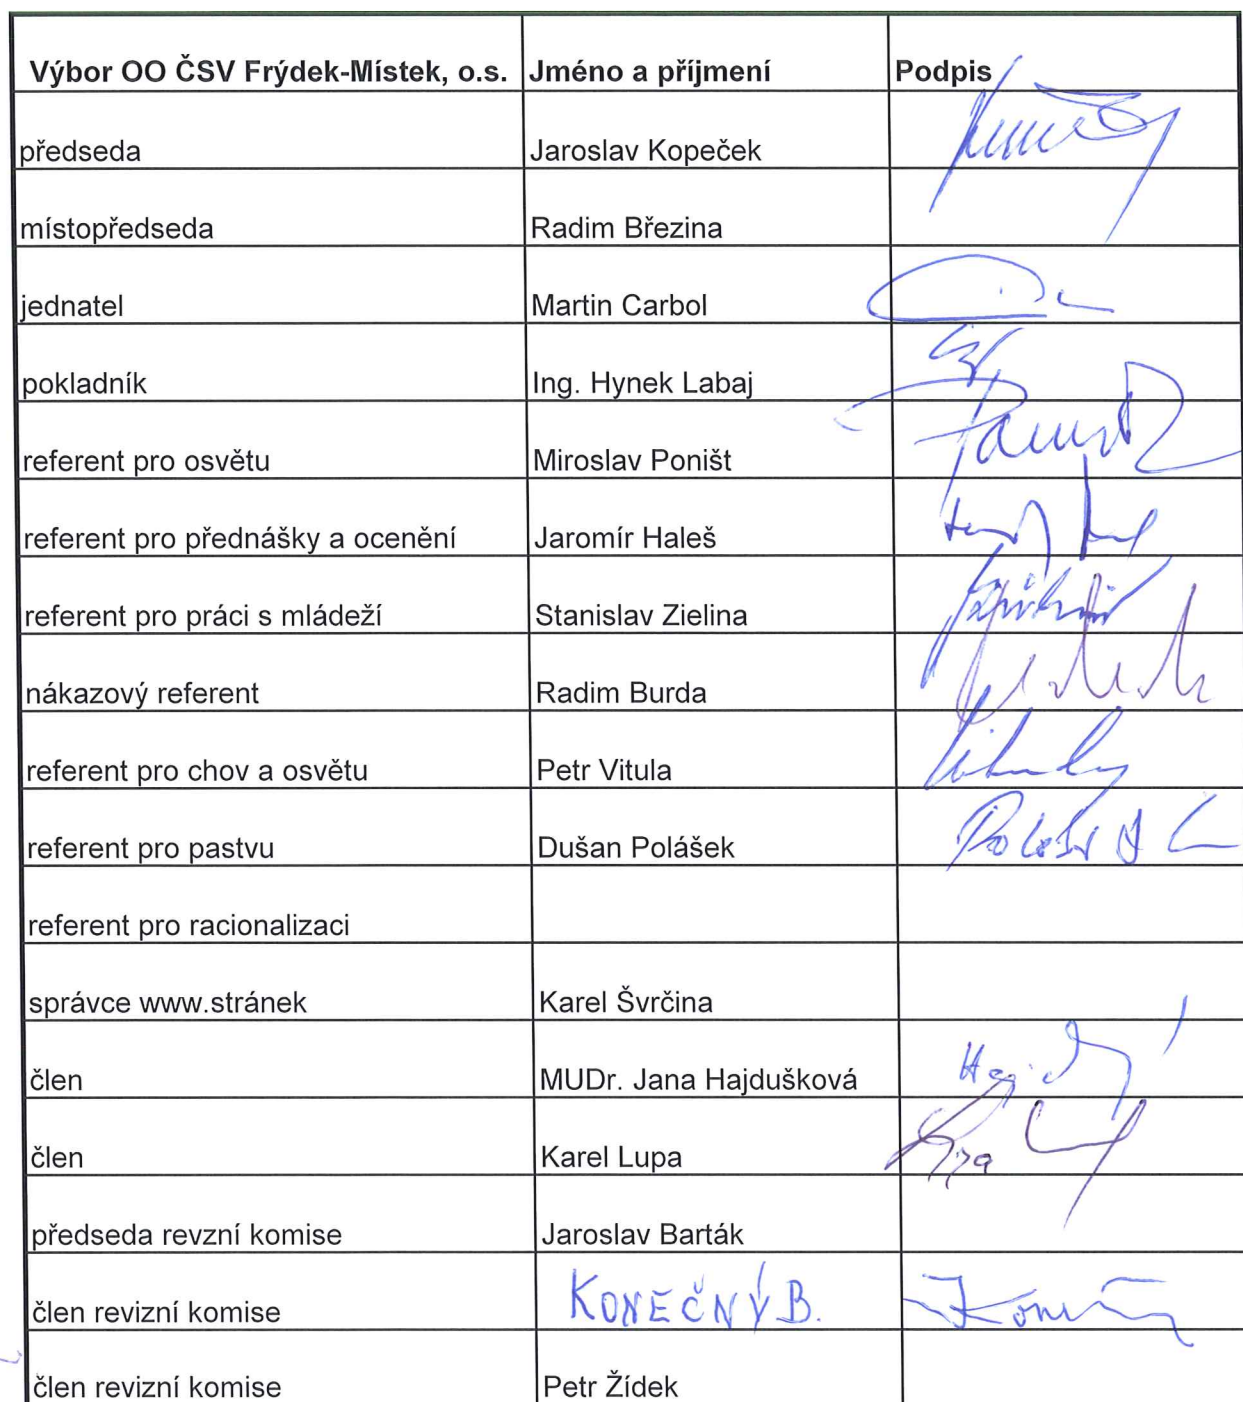 Výbor OO ČSV Frýdek-Místek, o.s. Jméno a příjmení Podpis
předseda Jaroslav Kopeček
místopředseda Radim Březina
jednatel Martin Carbol
pokladník Ing. Hynek Labaj
referent pro osvětu Miroslav Poništ
referent pro přednášky a ocenění Jaromír Haleš
referent pro práci s mládeží Stanislav Zielina
nákazový referent Radim Burda
referent pro chov a osvětu Petr Vitula
referent pro pastvu Dušan Polášek
referent pro racionalizaci
správce www.stránek Karel Švrčina
člen MUDr. Jana Hajdušková
člen Karel Lupa
předseda revzní komise Jaroslav Barták
člen revizní komise KONEČNÝ B.
člen revizní komise Petr Žídek